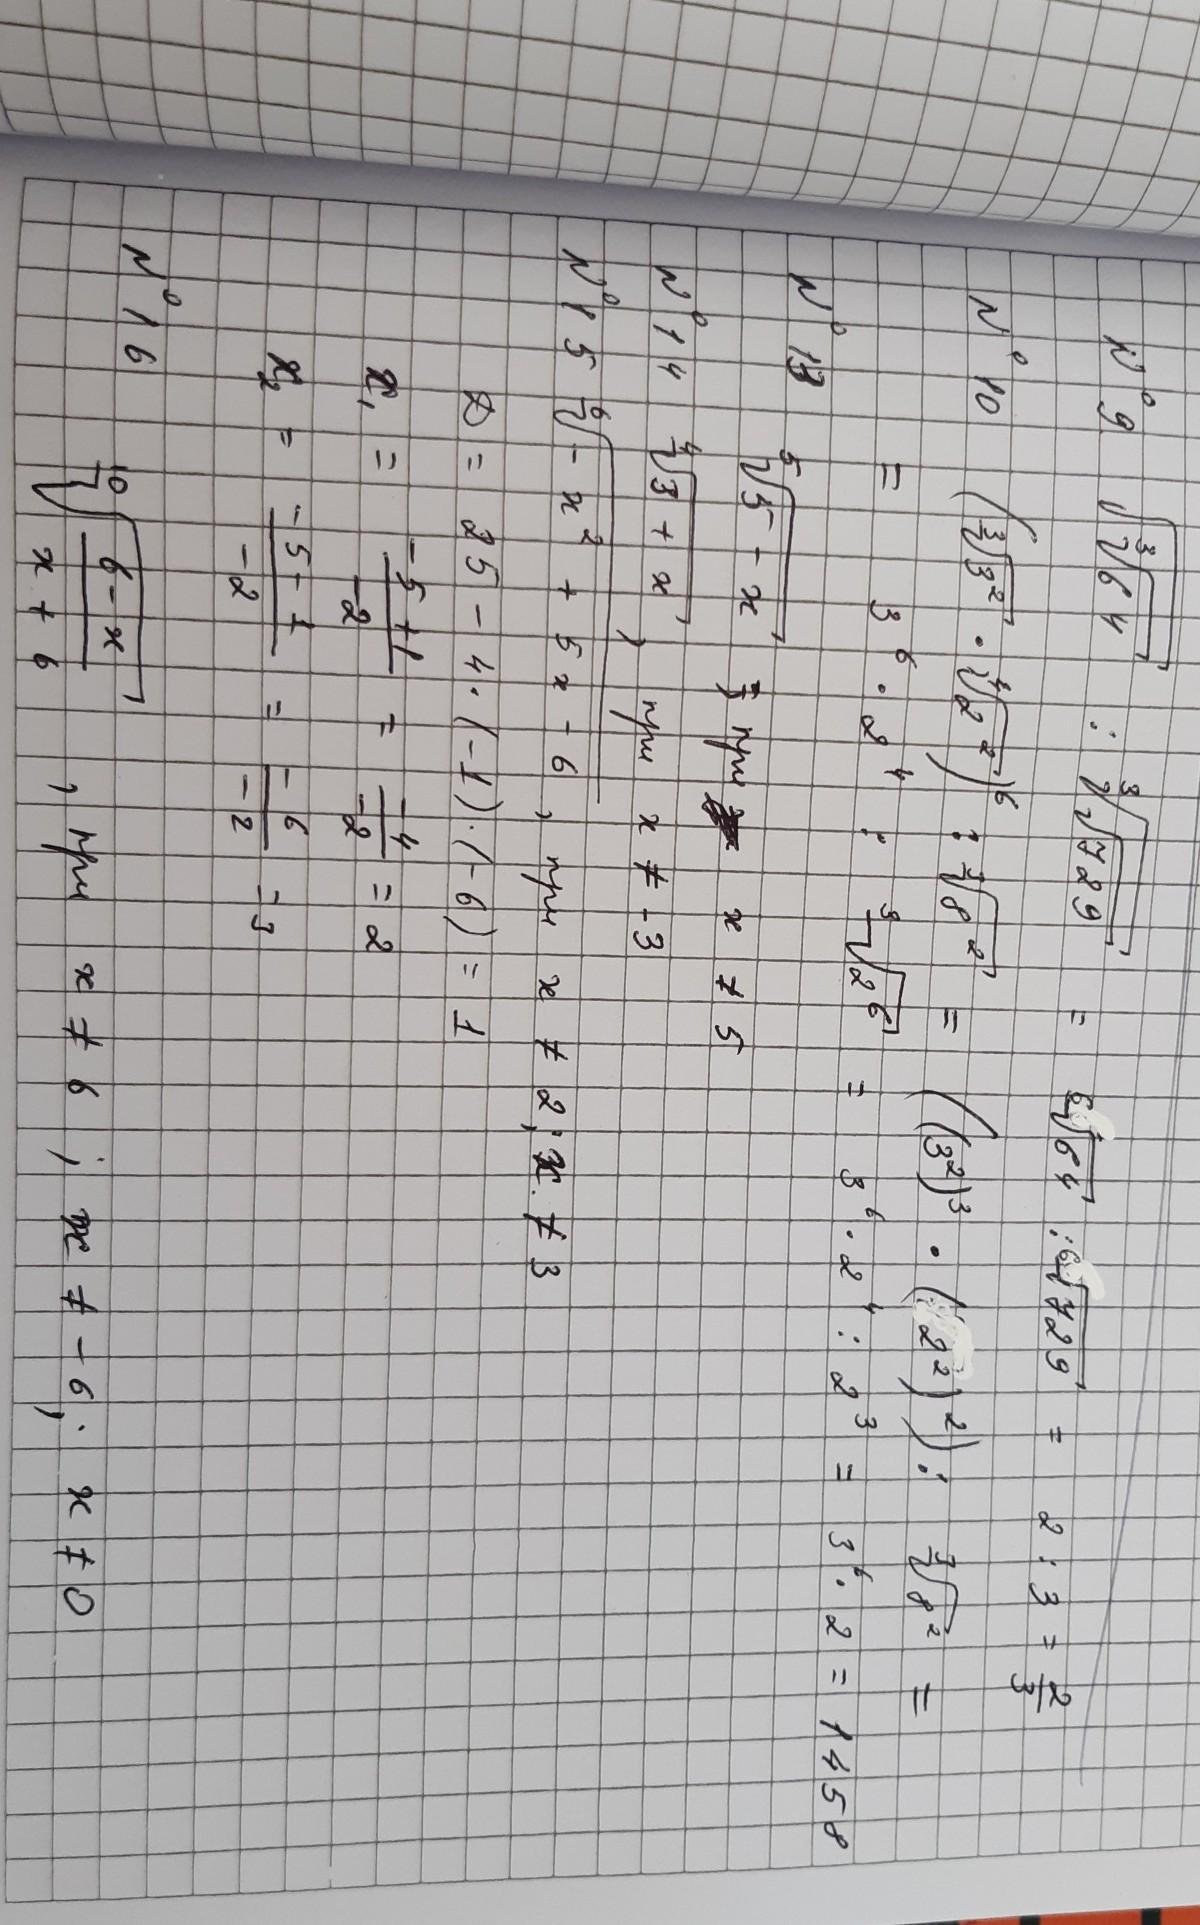 N° 9 √∛64 : ∛√729 = ⁶√64 : ⁶√729 = 2 : 3 = 2/3
N° 10 (∛3² · ⁴√2²)⁶ : ∛8² = ((3²)³ · (2²)²) : ∛8² =
= 3⁶ · 2⁴ : ∛2⁶ = 3⁶ · 2⁴ : 2³ = 3⁶ · 2 = 1458
N° 13 ⁵√5 + x , при x ≠ 5
N° 14 ⁴√3 + x , при x ≠ -3
N° 15 ⁶√-x² + 5x - 6 , при x ≠ 2; x ≠ 3
D = 25 - 4 · (-1) · (-6) = 1
x₁ = (-5 + 1)/(-2) = (-4)/(-2) = 2
x₂ = (-5 - 1)/(-2) = (-6)/(-2) = 3
N° 16 ¹⁰√(6 - x)/(x + 6) , при x ≠ 6 ; x ≠ -6; x ≠ 0